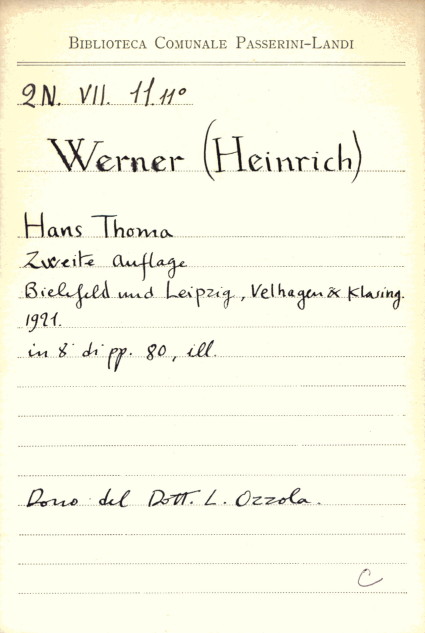 BIBLIOTECA COMUNALE PASSERINI-LANDI
2N. VII. 11.11º
Werner (Heinrich)
Hans Thoma
Zweite Auflage
Bielefeld und Leipzig, Velhagen & Klasing.
1921.
in 8° di pp. 80, ill.
Dono del Dott. L. Ozzola.
C